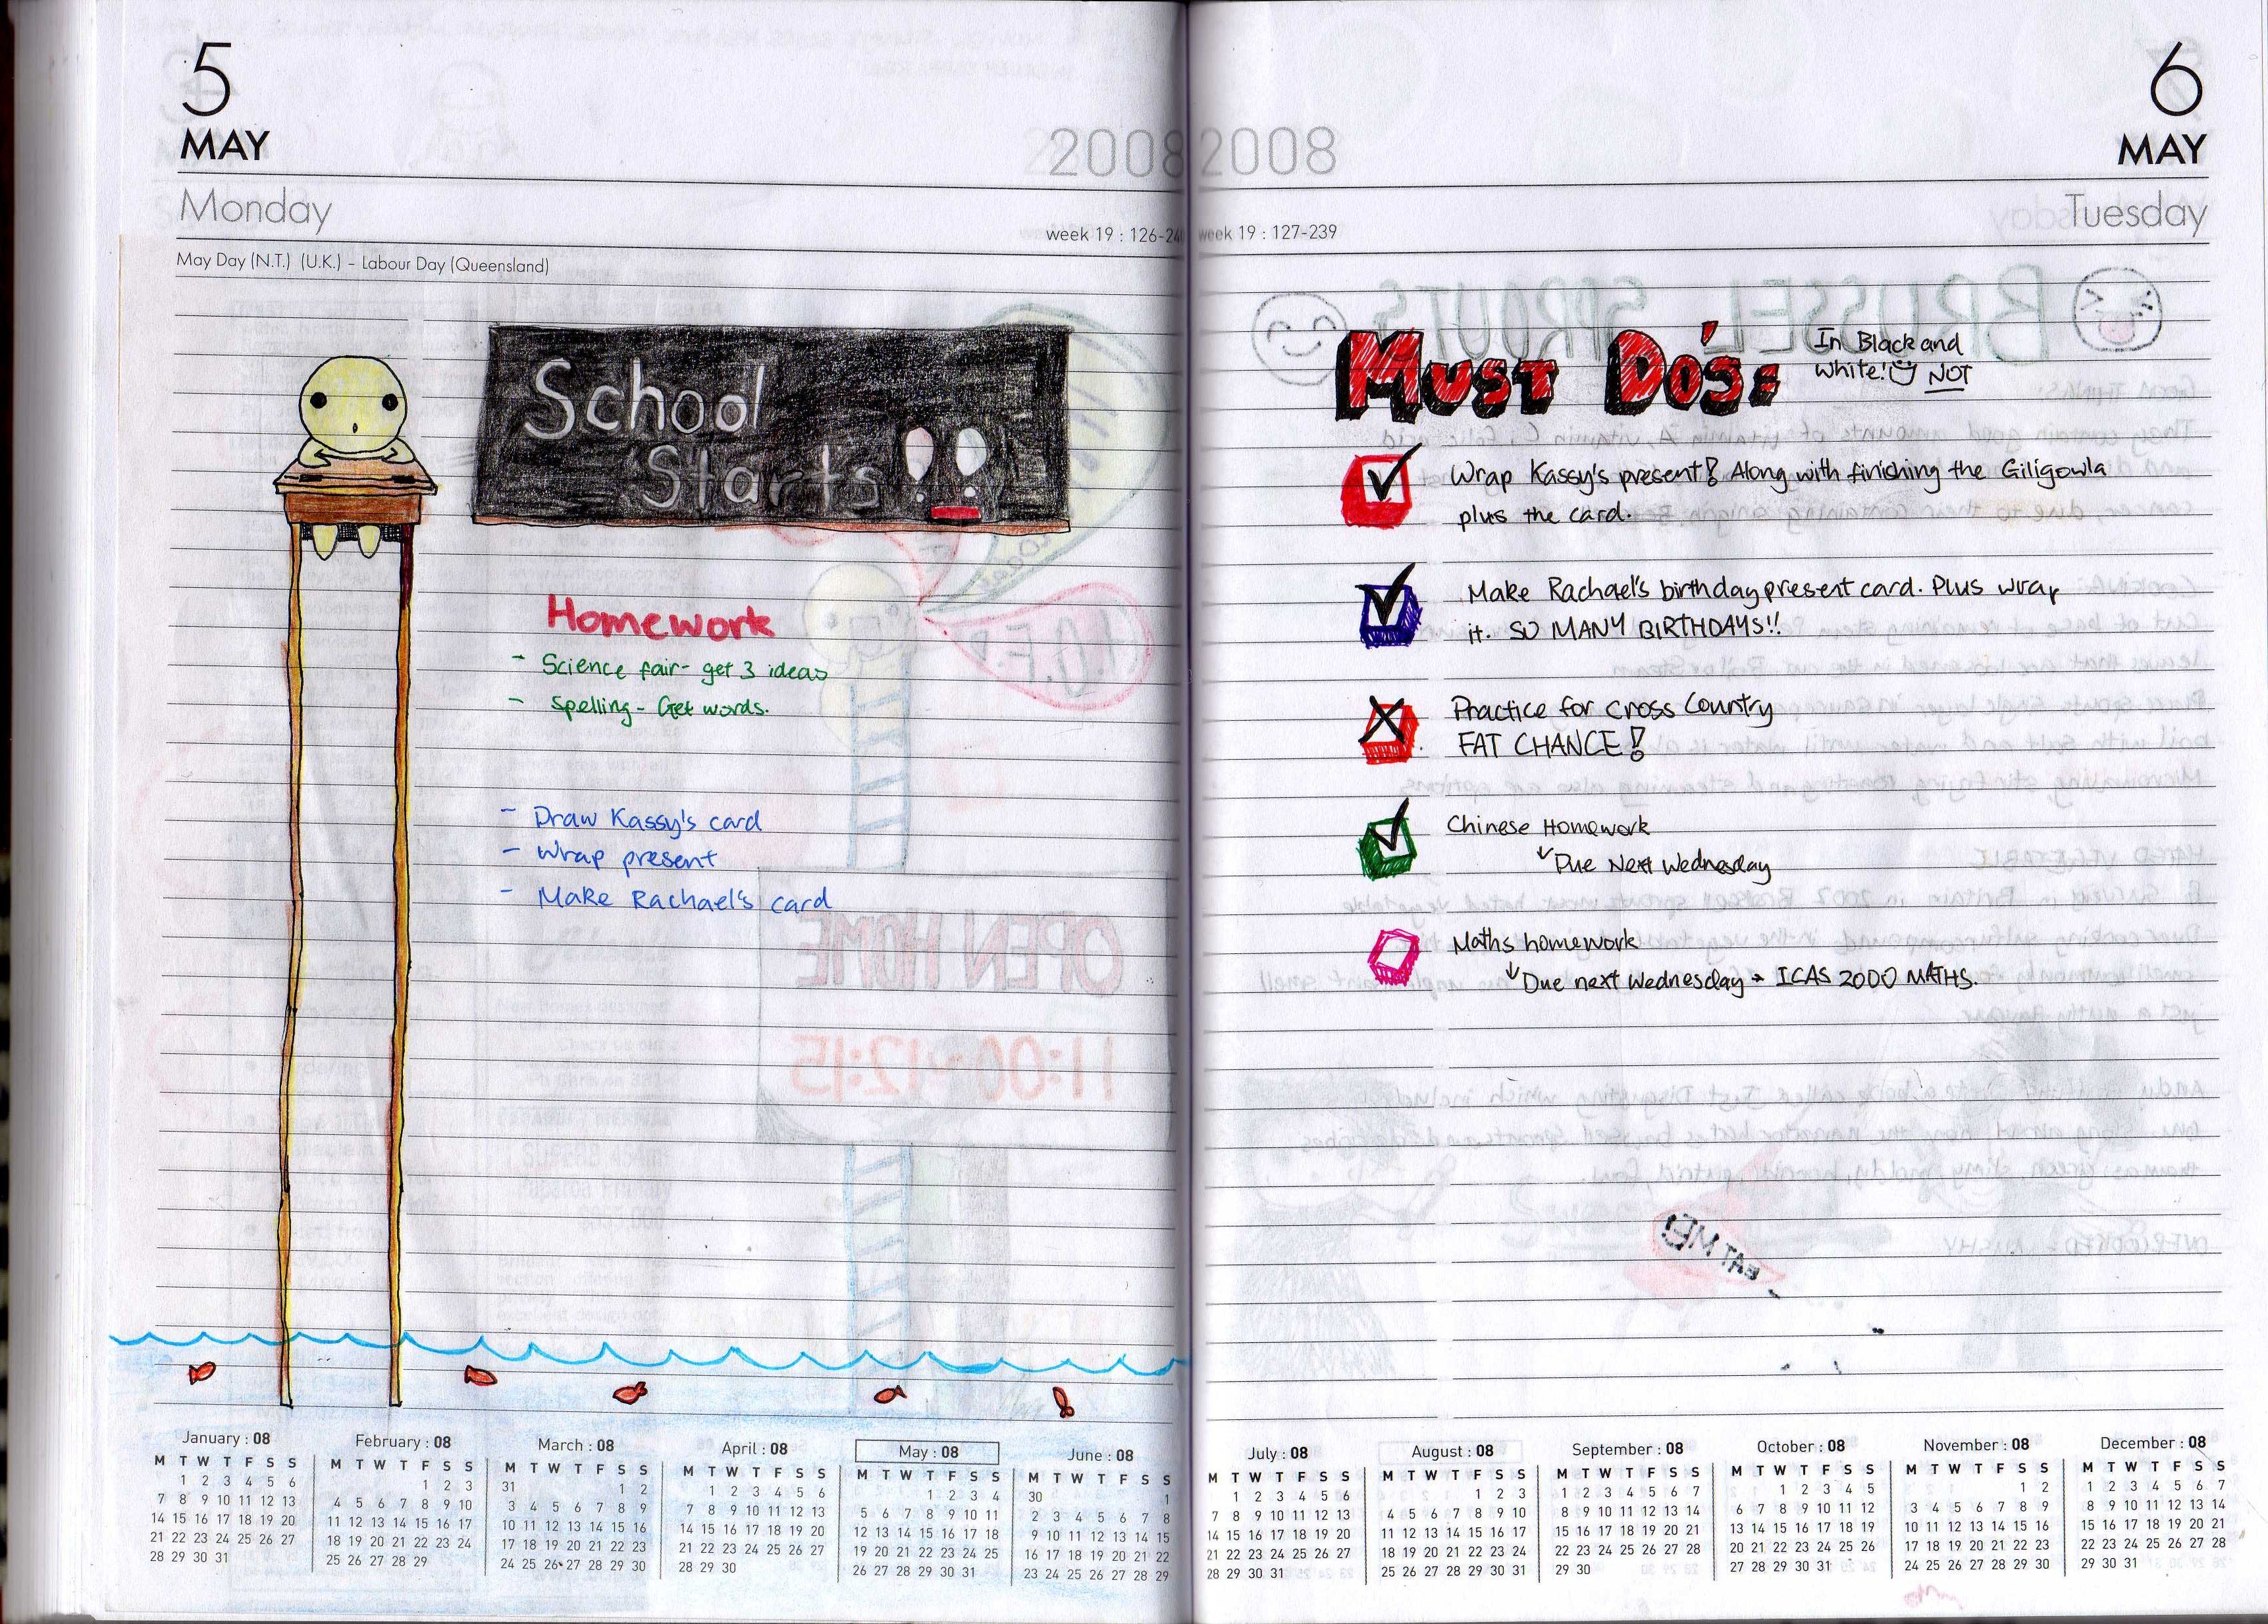 5
MAY
2008
Monday
week 19 : 126-24
May Day (N.T.) (U.K.) – Labour Day (Queensland)
School
Starts!!
Homework
- Science fair- get 3 ideas
- Spelling- Get words.
- Draw Kassy's card
- Wrap present
- Make Rachael's card
January : 08
M T W T F S S
1 2 3 4 5 6
7 8 9 10 11 12 13
14 15 16 17 18 19 20
21 22 23 24 25 26 27
28 29 30 31
February : 08
M T W T F S S
1 2 3
4 5 6 7 8 9 10
11 12 13 14 15 16 17
18 19 20 21 22 23 24
25 26 27 28 29
March : 08
M T W T F S S
31 1 2
3 4 5 6 7 8 9
10 11 12 13 14 15 16
17 18 19 20 21 22 23
24 25 26 27 28 29 30
April : 08
M T W T F S S
1 2 3 4 5 6
7 8 9 10 11 12 13
14 15 16 17 18 19 20
21 22 23 24 25 26 27
28 29 30
May : 08
M T W T F S S
1 2 3 4
5 6 7 8 9 10 11
12 13 14 15 16 17 18
19 20 21 22 23 24 25
26 27 28 29 30 31
June : 08
M T W T F S S
30 1
2 3 4 5 6 7 8
9 10 11 12 13 14 15
16 17 18 19 20 21 22
23 24 25 26 27 28 29
6
MAY
2008
Tuesday
week 19 : 127-239
Must Do's:
In Black and
White! NOT
Wrap Kassy's present! Along with finishing the Giligowla
plus the card.
Make Rachael's birthday present card. Plus wrap
it. SO MANY BIRTHDAYS!!
Practice for Cross Country
FAT CHANCE!
Chinese Homework
Due Next Wednesday
Maths homework
Due next Wednesday → ICAS 2000 MATHS.
July : 08
M T W T F S S
1 2 3 4 5 6
7 8 9 10 11 12 13
14 15 16 17 18 19 20
21 22 23 24 25 26 27
28 29 30 31
August : 08
M T W T F S S
1 2 3
4 5 6 7 8 9 10
11 12 13 14 15 16 17
18 19 20 21 22 23 24
25 26 27 28 29 30 31
September : 08
M T W T F S S
1 2 3 4 5 6 7
8 9 10 11 12 13 14
15 16 17 18 19 20 21
22 23 24 25 26 27 28
29 30
October : 08
M T W T F S S
1 2 3 4 5
6 7 8 9 10 11 12
13 14 15 16 17 18 19
20 21 22 23 24 25 26
27 28 29 30 31
November : 08
M T W T F S S
1 2
3 4 5 6 7 8 9
10 11 12 13 14 15 16
17 18 19 20 21 22 23
24 25 26 27 28 29 30
December : 08
M T W T F S S
1 2 3 4 5 6 7
8 9 10 11 12 13 14
15 16 17 18 19 20 21
22 23 24 25 26 27 28
29 30 31